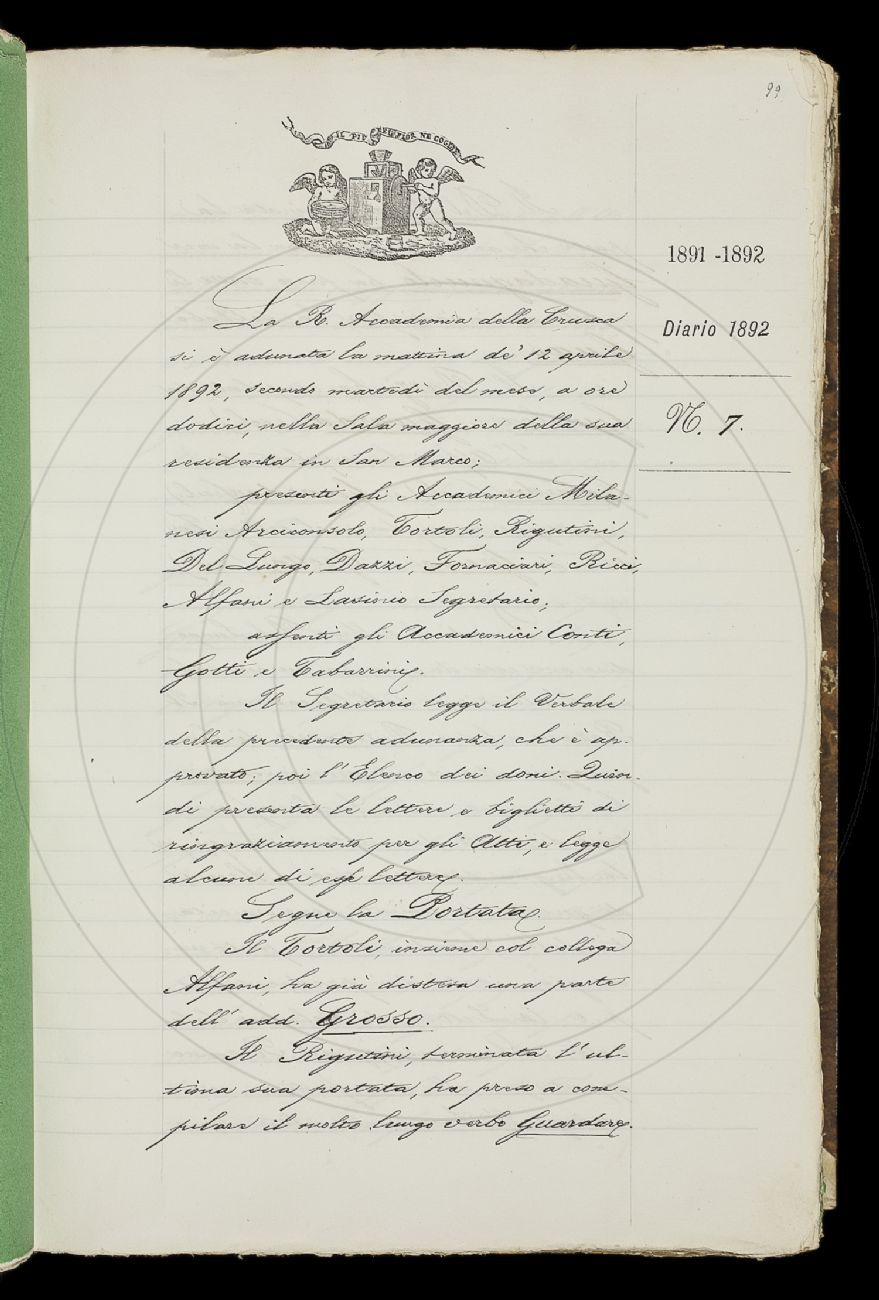 99
IL PIÙ BEL FIOR NE COGLIE
1891 - 1892
Diario 1892
N. 7.
La R. Accademia della Crusca
si è adunata la mattina de' 12 aprile
1892, secondo martedì del mese, a ore
dodici, nella Sala maggiore della sua
residenza in San Marco;
presenti gli Accademici Mila-
nesi Arciconsolo, Tortoli, Rigutini,
Del Lungo, Dazzi, Fornaciari, Ricci,
Alfani e Lasinio Segretario;
assenti gli Accademici Conti,
Gotti e Tabarrini.
Il Segretario legge il Verbale
della precedente adunanza, che è ap-
provato; poi l'Elenco dei doni. Quin-
di presenta le lettere e biglietti di
ringraziamento per gli Atti, e legge
alcune di esse lettere.
Segue la Portata.
Il Tortoli, insieme col collega
Alfani, ha già distesa una parte
dell'add. Grosso.
Il Rigutini, terminata l'ul-
tima sua portata, ha preso a com-
pilare il molto lungo verbo Guardare.